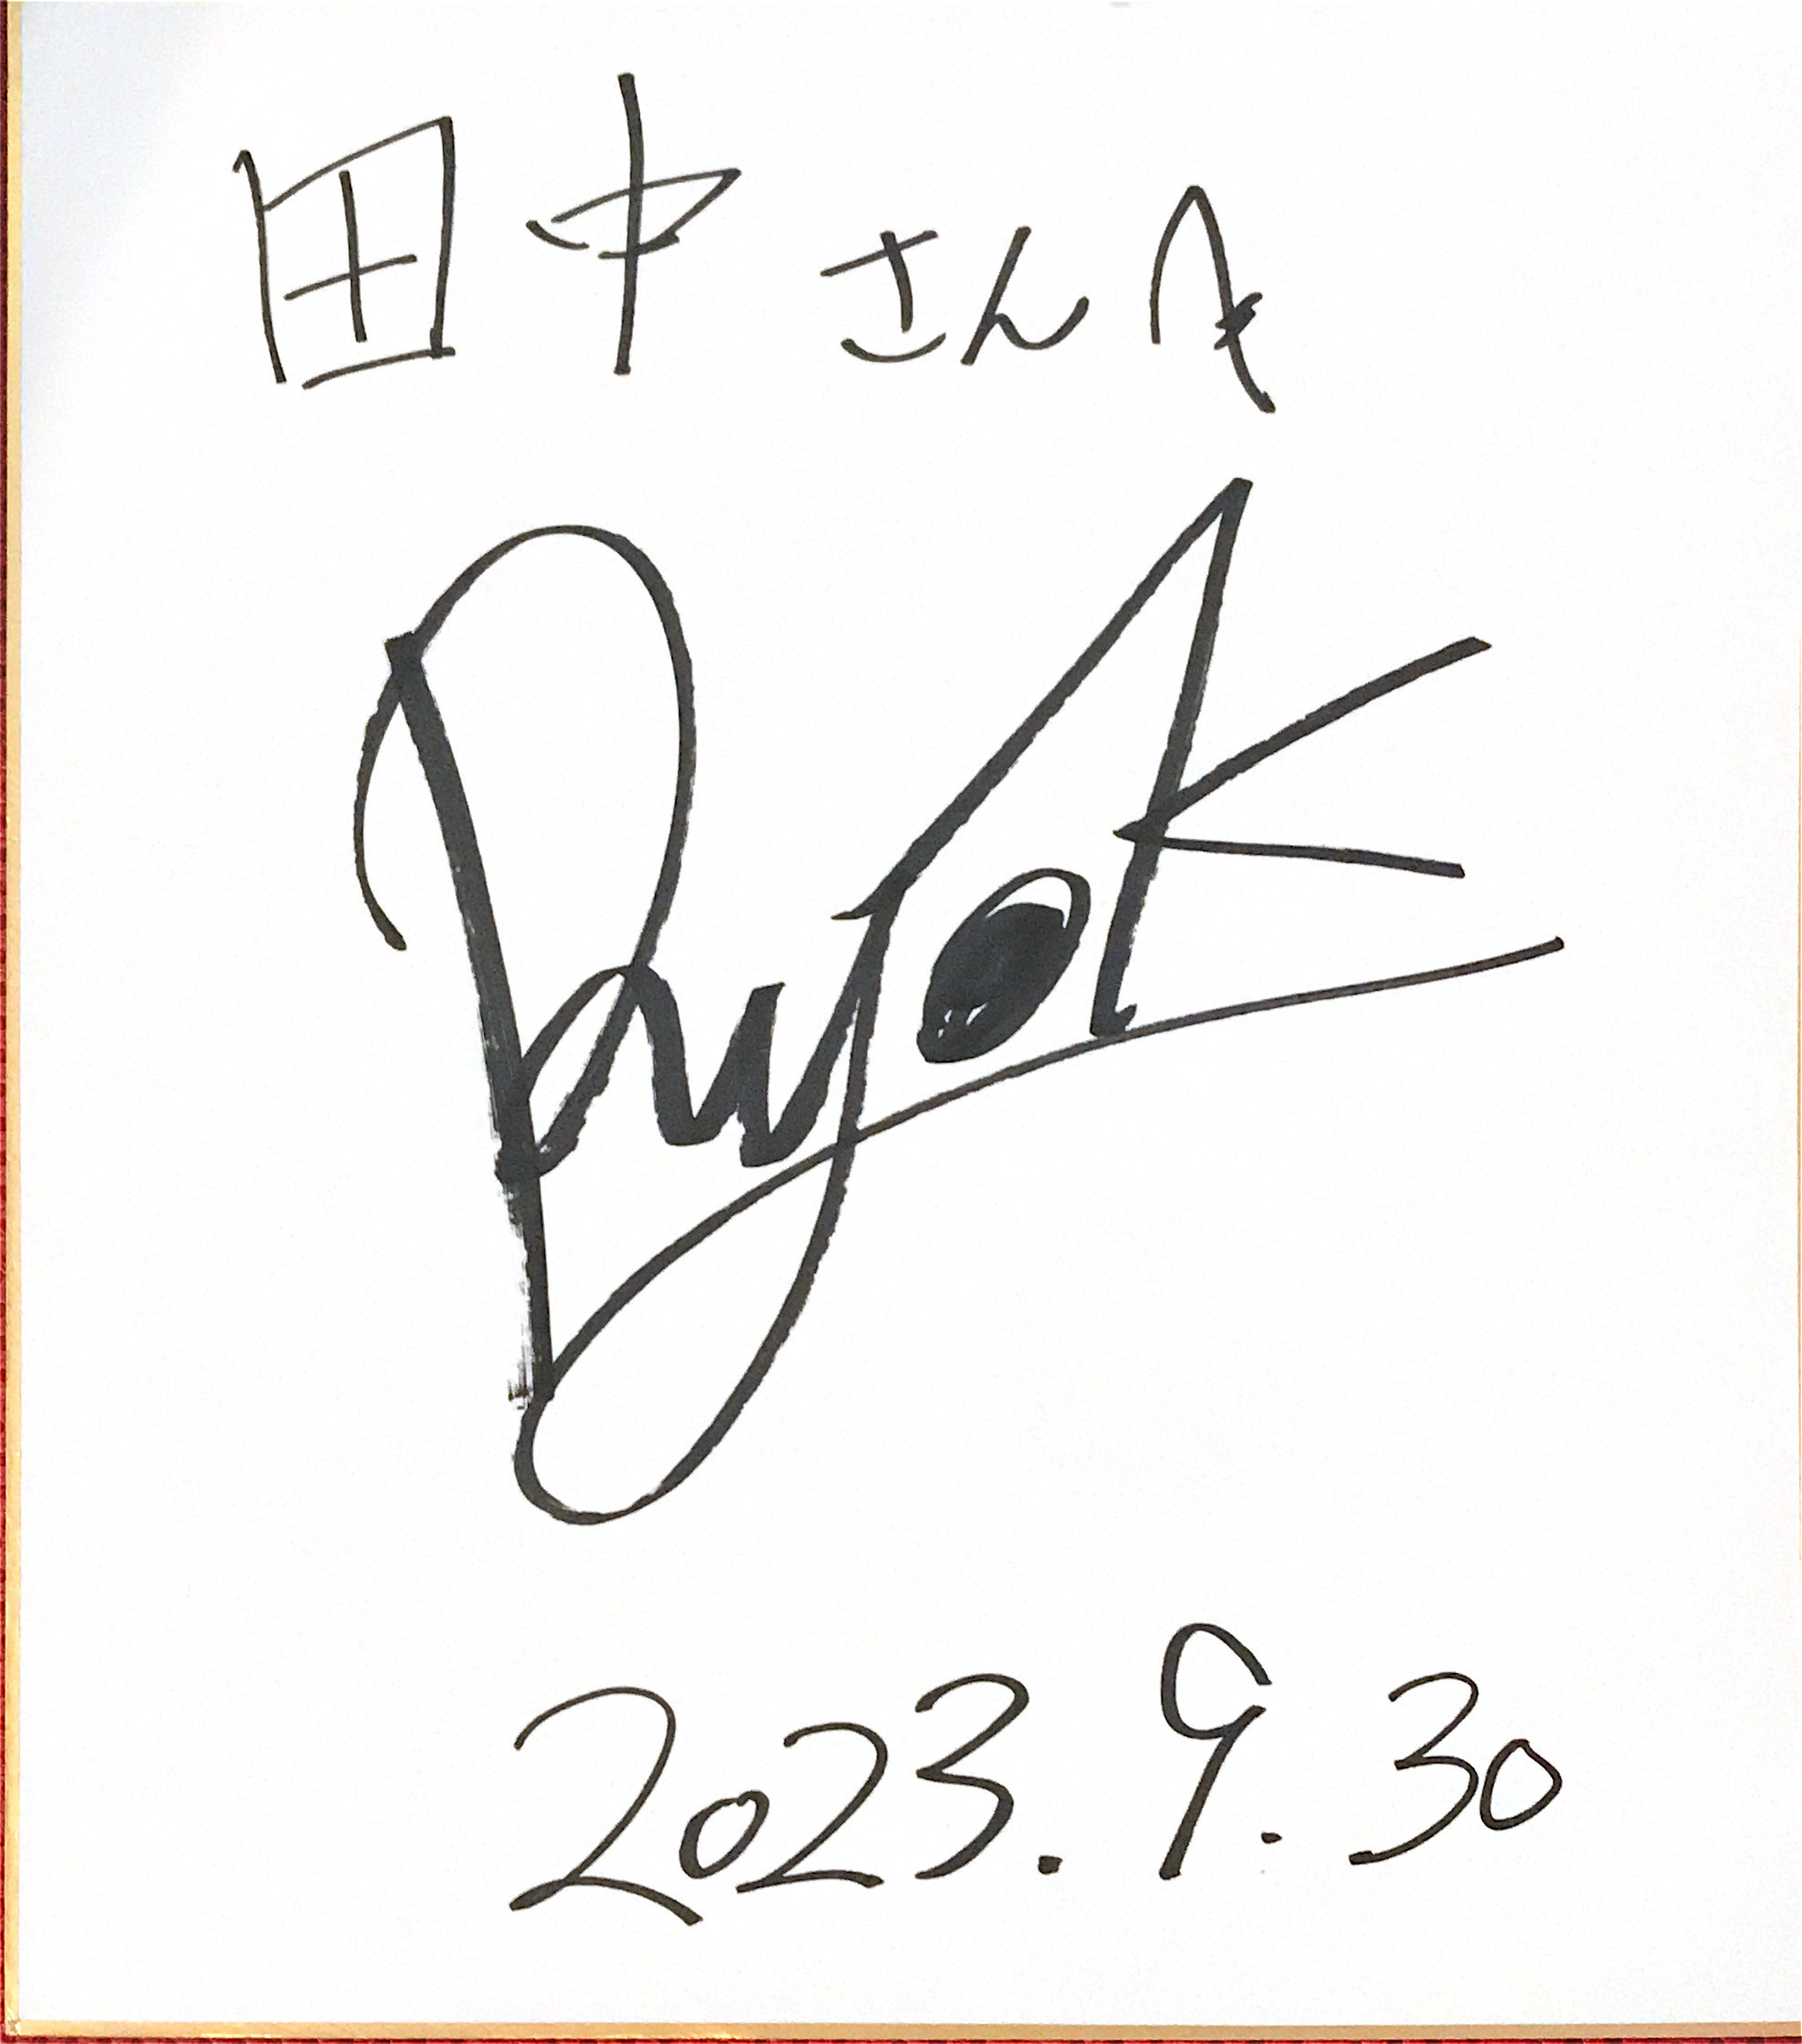 田中さんへ
RyoK
2023.9.30